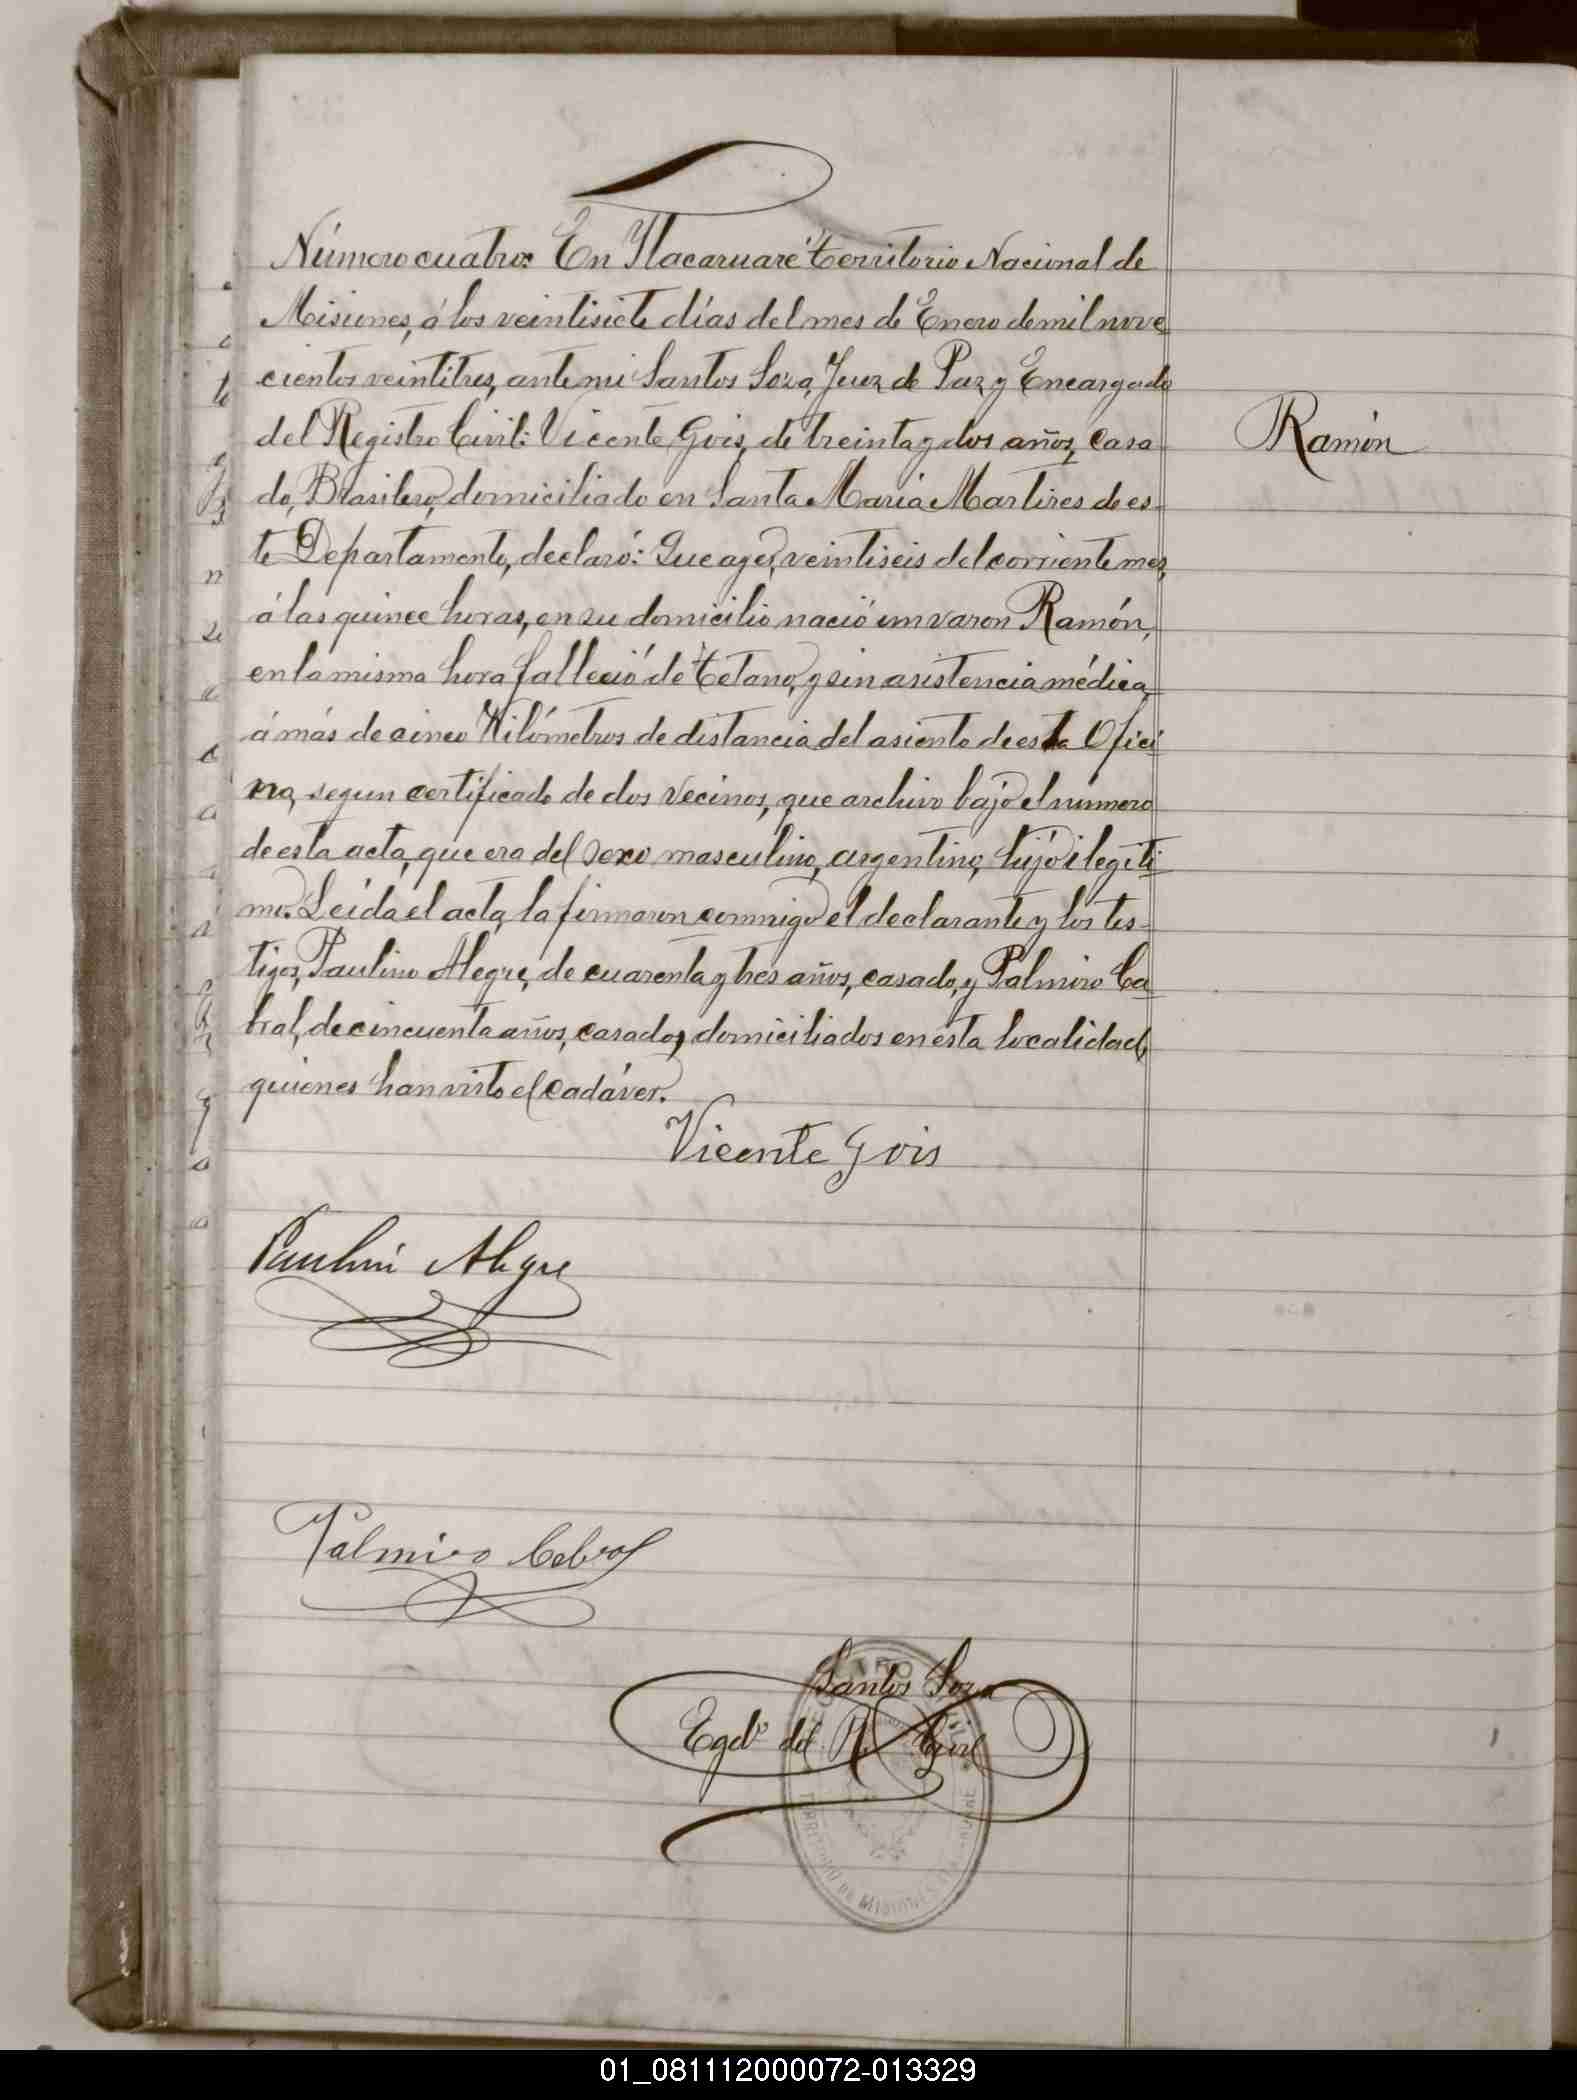 Número cuatro: En Ytacaruaré territorio Nacional de
Misiones, á los veintisiete días del mes de Enero de mil nove
cientos veintitres, ante mi Santos Soza, Juez de Paz y Encargado
del Registro Civil: Vicente Gois, de treinta y dos años, casa
do, Brasilero, domiciliado en Santa María Martires de es-
te Departamento, declaró: Que ayer, veintiseis del corriente mes,
á las quince horas, en su domicilio nació un varon Ramón,
en la misma hora falleció de tetano, y sin asistencia médica,
á más de cinco Kilómetros de distancia del asiento de esta Ofici
na, segun certificado de dos vecinos, que archivo bajo el número
de esta acta, que era del sexo masculino, argentino, hijo ilegíti
mo. Leída el acta, la firmaron conmigo el declarante y los tes-
tigos, Paulino Alegre, de cuarenta y tres años, casado, y Palmiro Ca
bral, de cincuenta años, casado, domiciliados en esta localidad,
quienes han visto el cadáver.
Ramón
Vicente Gois
Paulino Alegre
Palmiro Cabral
Santos Soza
Egdo del R. Civil
TERRITORIO DE MISIONES
01_081112000072-013329